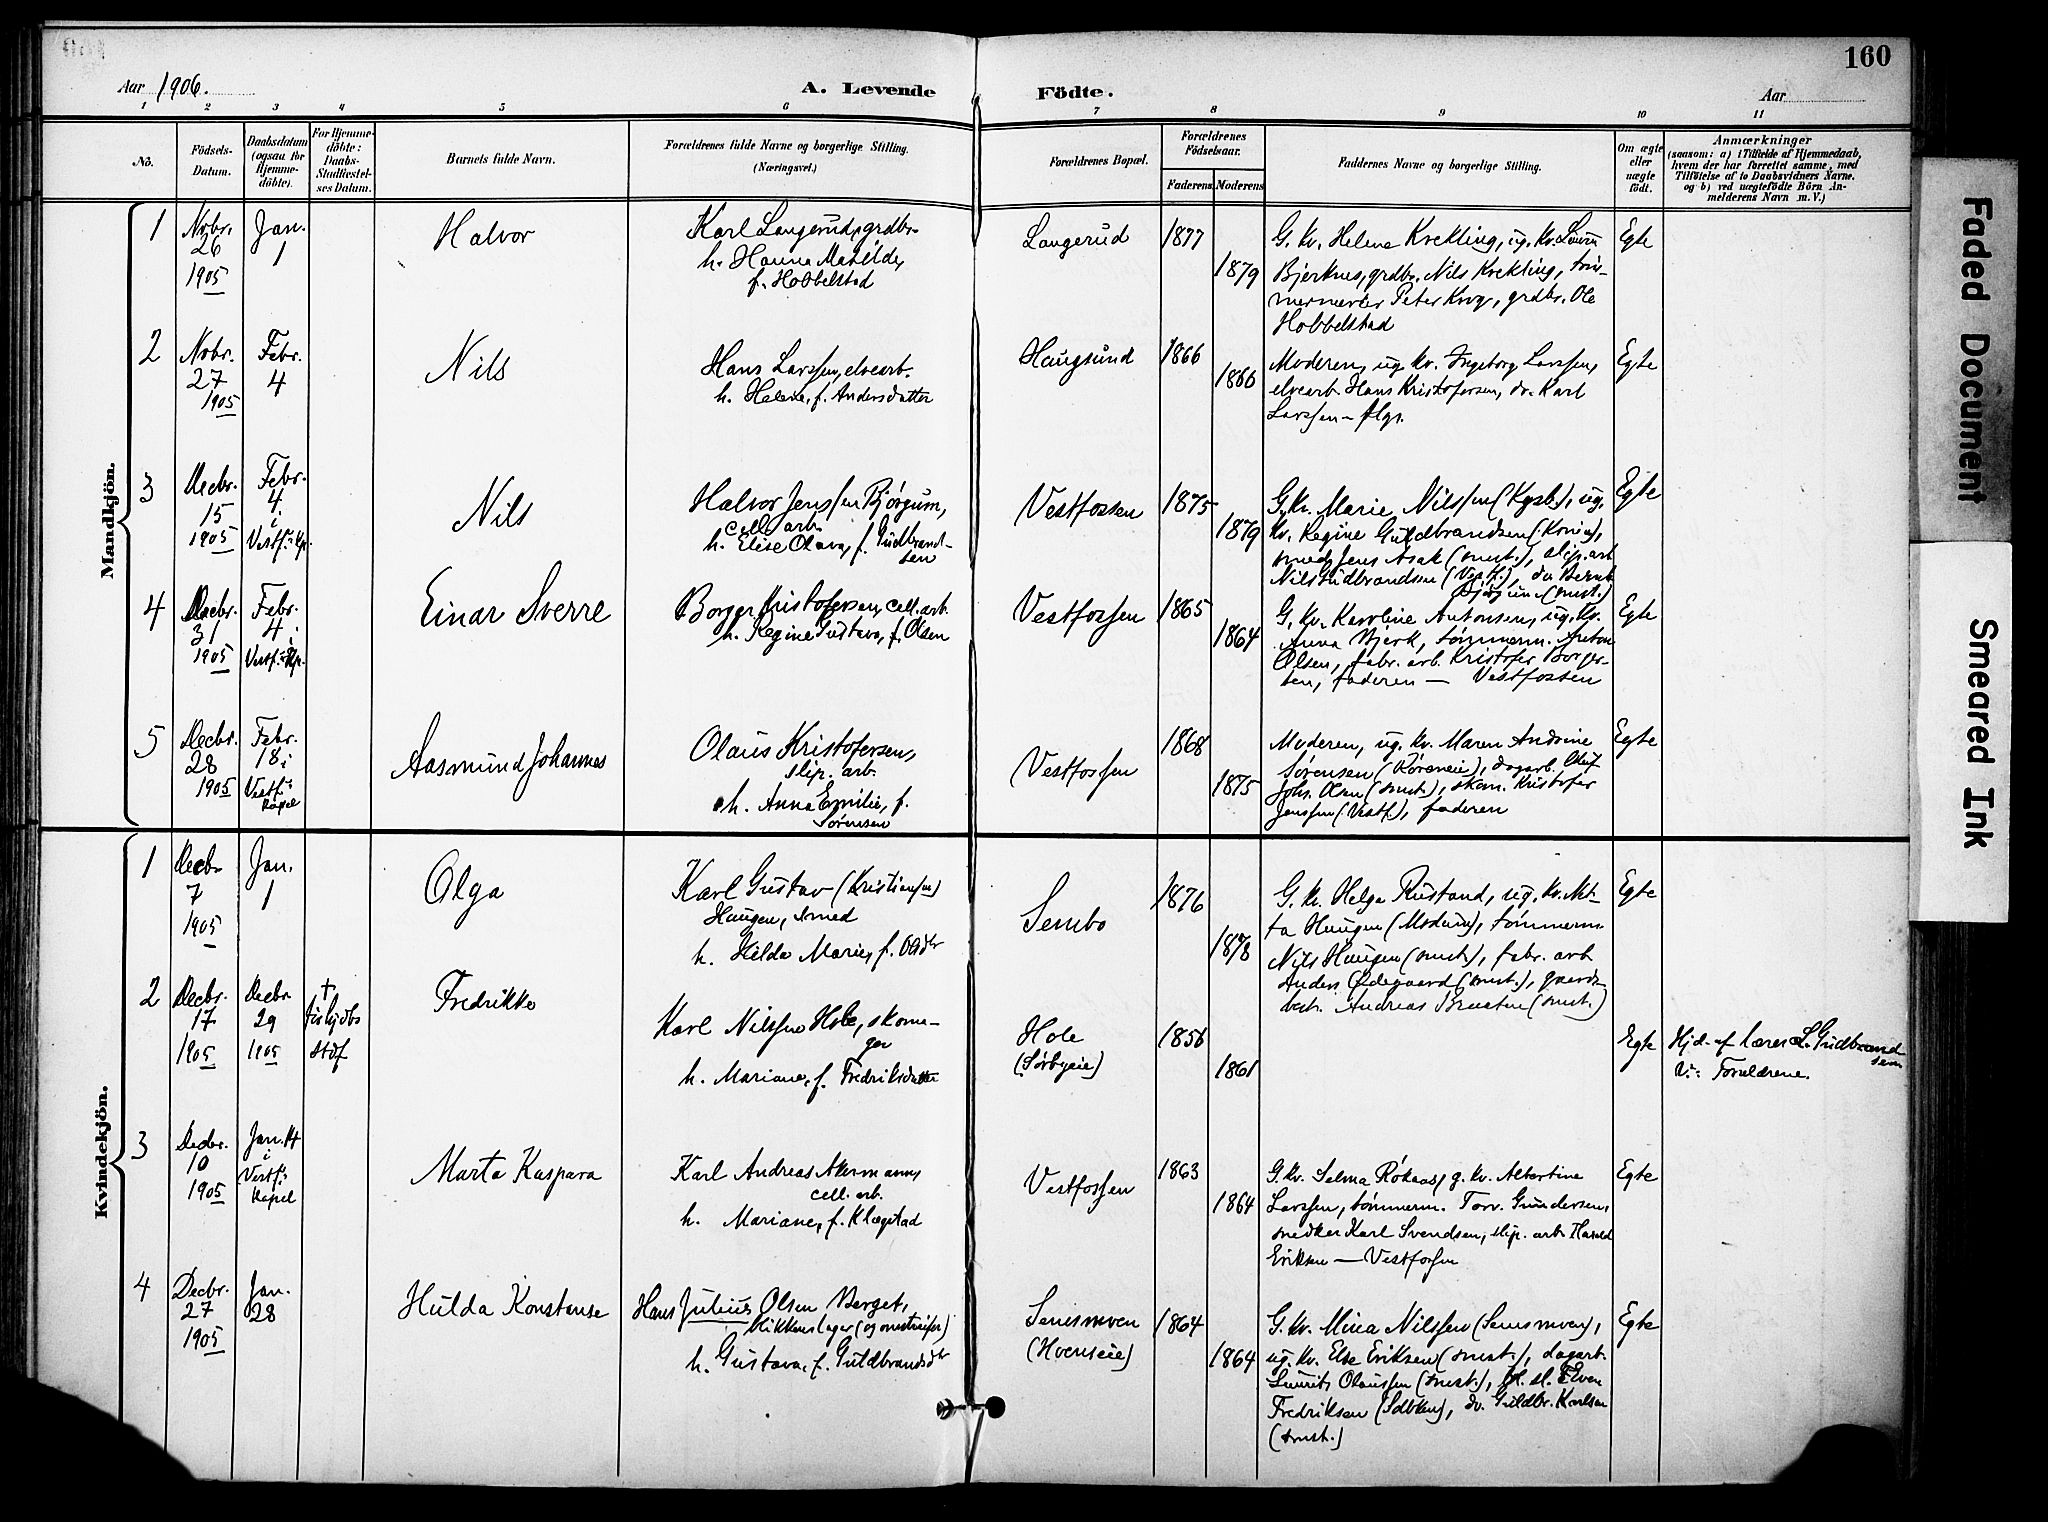 160
Aar 1906.
A. Levende Födte.
Aar
1 2 3 4 5 6 7 8 9 10 11
No.
Födsels-
Datum.
Daabsdatum
(ogsaa for
Hjemme-
döbte).
For Hjemme-
döbte:
Daabs-
Stadfæstel-
ses Datum.
Barnets fulde Navn.
Forældrenes fulde Navne og borgerlige Stilling.
(Næringsvei.)
Forældrenes Bopæl.
Forældrenes
Födselsaar.
Faderens. Moderens.
Faddernes Navne og borgerlige Stilling.
Om ægte
eller
uægte
födt.
Anmærkninger
(saasom: a) i Tilfælde af Hjemmedaab,
hvem der har forrettet samme, med
Tilföielse af to Daabsvidners Navne.
og b) ved uægtefödte Börn An-
melderens Navn m. V.)
Mandkjön.
1
Novbr.
26
1905
Jan.
1
Halvor
Karl Langerud, grdbr.
h. Hanna Matilde,
f. Hobbelstad
Langerud
1877
1879
G. kv. Helene Krekling, ug. kv.
Bjerknes, grdbr. Nils Krekling, töm-
mermester Peter Krog, grdbr. Ole
Hobbelstad
Egte
2
Novbr.
27
1905
Febr.
4
Nils
Hans Larssen, elvearb.
h. Helene, f. Andersdatter
Haugsund
1866
1866
Moderen, ug. kv. Ingeborg Larssen,
elvearb. Hans Kristofersen, do. Karl
Larssen –
Egte
3
Decbr.
15
1905
Febr.
4
i
Vestf.s Kp.
Nils
Halvor Jenssen Bjørgum,
cell. arb.
h. Elise Olava, f. Gudbrand-
sen
Vestfossen
1875
1879
G. kv. Marie Nilssen, ug.
kv. Regine Guldbrandsen
smed Jens Asak (smst.), slip. arb.
Nils Gudbrandsen (Vestf.), do Bernt
Bjørgum (smst.)
Egte
4
Decbr.
31
1905
Febr.
4
i
Vestf.s Kp.
Einar Sverre
Borger Kristofersen, cell. arb.
h. Regine Gustava, f. Olsen
Vestfossen
1865
1864
G. kv. Karoline Antonsen, ug. kv.
Anna Bjerk, tømmerm. Anton
Olsen, fabr. arb. Kristofer Borger-
sen, faderen – Vestfossen
Egte
5
Decbr.
28
1905
Febr.
18 i
Vestf.s
Kapel
Aasmund Johannes
Olaus Kristofersen,
slip. arb.
h. Anna Emilie, f.
Sørensen
Vestfossen
1868
1875
Moderen, ug. kv. Maren Andrine
Sørensen, dagarb. Oluf
Johs. Olsen (smst.), skom. Kristofer
Jenssen (Vestf.), faderen
Egte
Kvindekjön.
1
Decbr.
7
1905
Jan.
1
Olga
Karl Gustav (Kristiansen)
Haugen, smed
h. Hilda Marie, f.
Sembo
1876
1878
G. kv. Helga Rustand, ug. kv.
Haugen (Modum), tømmerm.
Nils Haugen (smst.), fabr. arb.
Anders Ødegaard (smst.), gaards-
best. Andreas Braaten (smst.)
Egte
2
Decbr.
17
1905
Decbr.
29
1905
†
stdf
Fredrikke
Karl Nilssen Hole, skoma-
ger
h. Mariane, f. Fredriksdatter
Hole
(Sørbyeie)
1856
1861
Egte
Hjd. af lærer L. Gudbrand-
sen
V.: Forældrene.
3
Decbr.
10
1905
Jan. 14
i
Vestf.s
Kapel
Marta Kaspara
Karl Andreas Akermann,
cell. arb.
h. Mariane, f. Klægstad
Vestfossen
1863
1864
G. kv. Selma Røkaas, g. kv. Albertine
Larssen, tømmerm. Torv. Gundersen,
snedker Karl Svendsen, slip. arb. Harald
Eriksen – Vestfossen
Egte
4
Decbr.
27
1905
Jan.
28
Hulda Konstanse
Hans Julius Olsen Berget,
blikkenslager (og omstreifer)
h. Gustava, f. Guldbrandsdtr
Semsmoen
(Hvenseie)
1864
1864
G. kv. Mina Nilssen (Semsmoen),
ug. kv. Else Eriksen (smst.), dagarb.
Laurits Olaussen (smst.), bl. sl. Even
Fredriksen, do. Guldbr. Karlsen
(smst.)
Egte
Faded Document
Smeared Ink